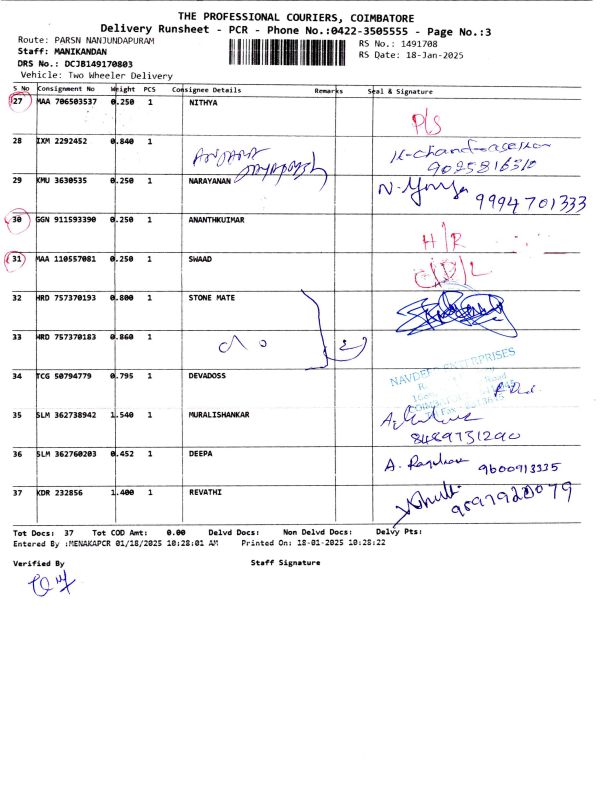 THE PROFESSIONAL COURIERS, COIMBATORE
Delivery Runsheet - PCR - Phone No.:0422-3505555 - Page No.:3
Route: PARSN NANJUNDAPURAM
RS No.: 1491708
Staff: MANIKANDAN
RS Date: 18-Jan-2025
DRS No.: DCJB149170803
Vehicle: Two Wheeler Delivery
S No Consignment No Weight PCS Consignee Details Remarks Seal & Signature
27 MAA 706503537 0.250 1 NITHYA
P/S
28 IXM 2292452 0.840 1
9025816310
29 KMU 3630535 0.250 1 NARAYANAN
9994701333
30 GGN 911593390 0.250 1 ANANTHKUIMAR
H/R
31 MAA 110557081 0.250 1 SWAAD
32 HRD 757370193 0.800 1 STONE MATE
33 HRD 757370183 0.860 1
34 TCG 50794779 0.795 1 DEVADOSS
NAVDEEP ENTERPRISES
35 SLM 362738942 1.540 1 MURALISHANKAR
8489731290
36 SLM 362760203 0.452 1 DEEPA
9600913335
37 KDR 232856 1.400 1 REVATHI
Tot Docs: 37 Tot COD Amt: 0.00 Delvd Docs: Non Delvd Docs: Delvy Pts:
Entered By :MENAKAPCR 01/18/2025 10:28:01 AM Printed On: 18-01-2025 10:28:22
Verified By Staff Signature